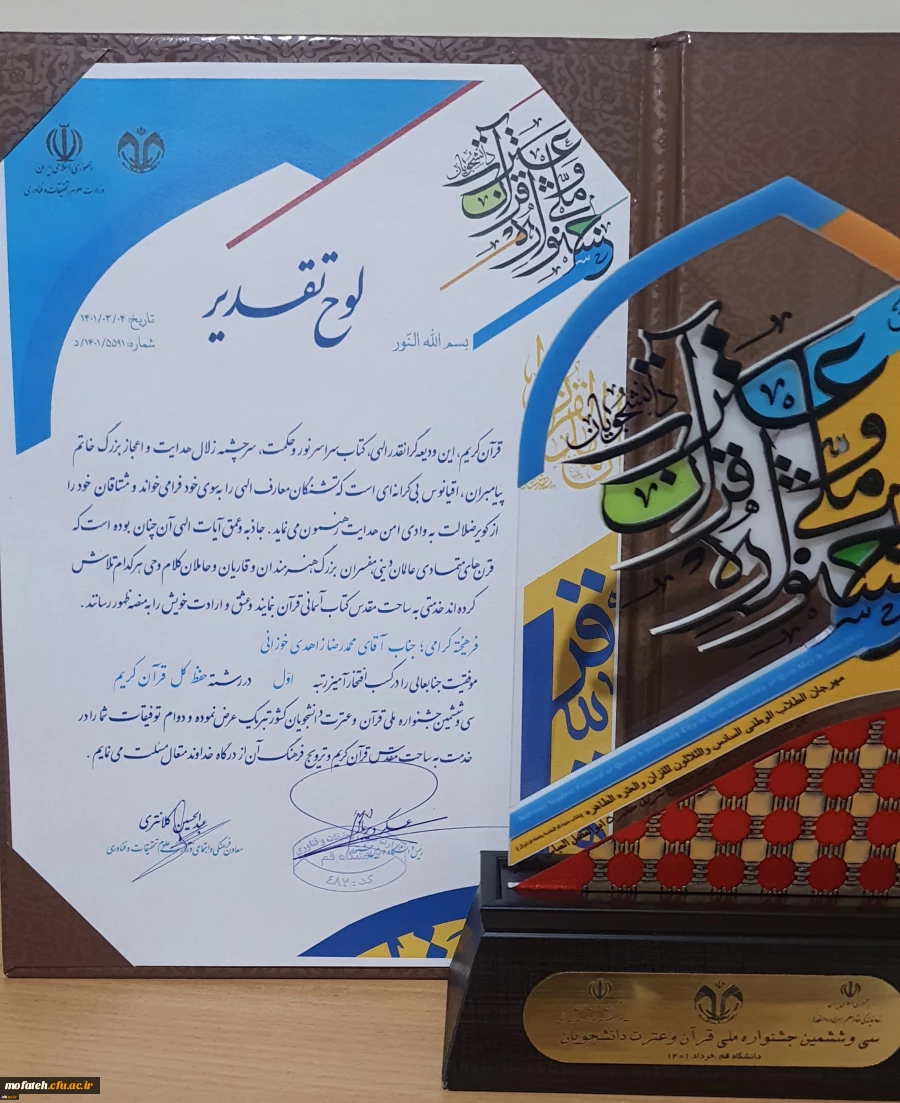 جمهوری اسلامی ایران
وزارت علوم، تحقیقات و فناوری
جشنواره ملی قرآن و عترت دانشجویان
لوح تقدیر
تاریخ: ۱۴۰۱/۰۳/۰۴
شماره: ۱۴۰۱/۵۵۹۱/د
بسم الله النّور
قرآن کریم، این ودیعه گرانقدر الهی، کتاب سراسر نور و حکمت، سرچشمه زلال هدایت و اعجاز بزرگ خاتم
پیامبران، اقیانوس بی‌کرانه‌ای است که تشنگان معارف الهی را به‌سوی خود فرامی‌خواند و مشتاقان خود را
از کویر ضلالت به وادی امن هدایت رهنمون می‌نماید. جاذبه و عمق آیات الهی آن چنان بوده است که
قرن‌های متمادی عالمان دینی، مفسران بزرگ، هنرمندان و قاریان و حاملان کلام وحی هر کدام تلاش
کرده‌اند خدمتی به ساحت مقدس کتاب آسمانی قرآن نمایند و عشق و ارادت خویش را به منصه ظهور رسانند.
فرهیخته گرامی؛ جناب آقای محمدرضا زاهدی خوزانی
موفقیت جنابعالی را در کسب افتخارآمیز رتبه اول در رشته حفظ کل قرآن کریم
سی و ششمین جشنواره ملی قرآن و عترت دانشجویان کشور تبریک عرض نموده و دوام توفیقات شما را در
خدمت به ساحت مقدس قرآن کریم و ترویج فرهنگ آن از درگاه خداوند متعال مسئلت می‌نمایم.
عبدالحسین کلانتری
معاون فرهنگی و اجتماعی وزارت علوم، تحقیقات و فناوری
دانشگاه قم
کد: ۴۸۲
جشنواره ملی قرآن و عترت دانشجویان
مهرجان الطلاب الوطنی السادس والثلاثون للقرآن والعترة الطاهرة
سی و ششمین جشنواره ملی قرآن و عترت دانشجویان
دانشگاه قم، خرداد ۱۴۰۱
mofateh.cfu.ac.ir